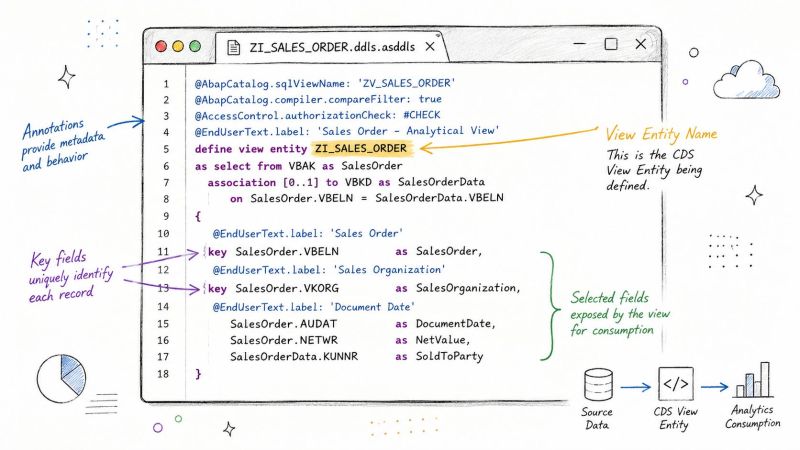 ZI_SALES_ORDER.ddls.asddls
1 @AbapCatalog.sqlViewName: 'ZV_SALES_ORDER'
2 @AbapCatalog.compiler.compareFilter: true
3 @AccessControl.authorizationCheck: #CHECK
4 @EndUserText.label: 'Sales Order – Analytical View'
5 define view entity ZI_SALES_ORDER
6 as select from VBAK as SalesOrder
7 association [0..1] to VBKD as SalesOrderData
8 on SalesOrder.VBELN = SalesOrderData.VBELN
9 {
10 @EndUserText.label: 'Sales Order'
11 key SalesOrder.VBELN as SalesOrder,
12 @EndUserText.label: 'Sales Organization'
13 key SalesOrder.VKORG as SalesOrganization,
14 @EndUserText.label: 'Document Date'
15 SalesOrder.AUDAT as DocumentDate,
16 SalesOrder.NETWR as NetValue,
17 SalesOrderData.KUNNR as SoldToParty
18 }
Annotations
provide metadata
and behavior
Key fields
uniquely identify
each record
View Entity Name
This is the CDS
View Entity being
defined.
Selected fields
exposed by the view
for consumption
Source
Data
</>
CDS View
Entity
Analytics
Consumption